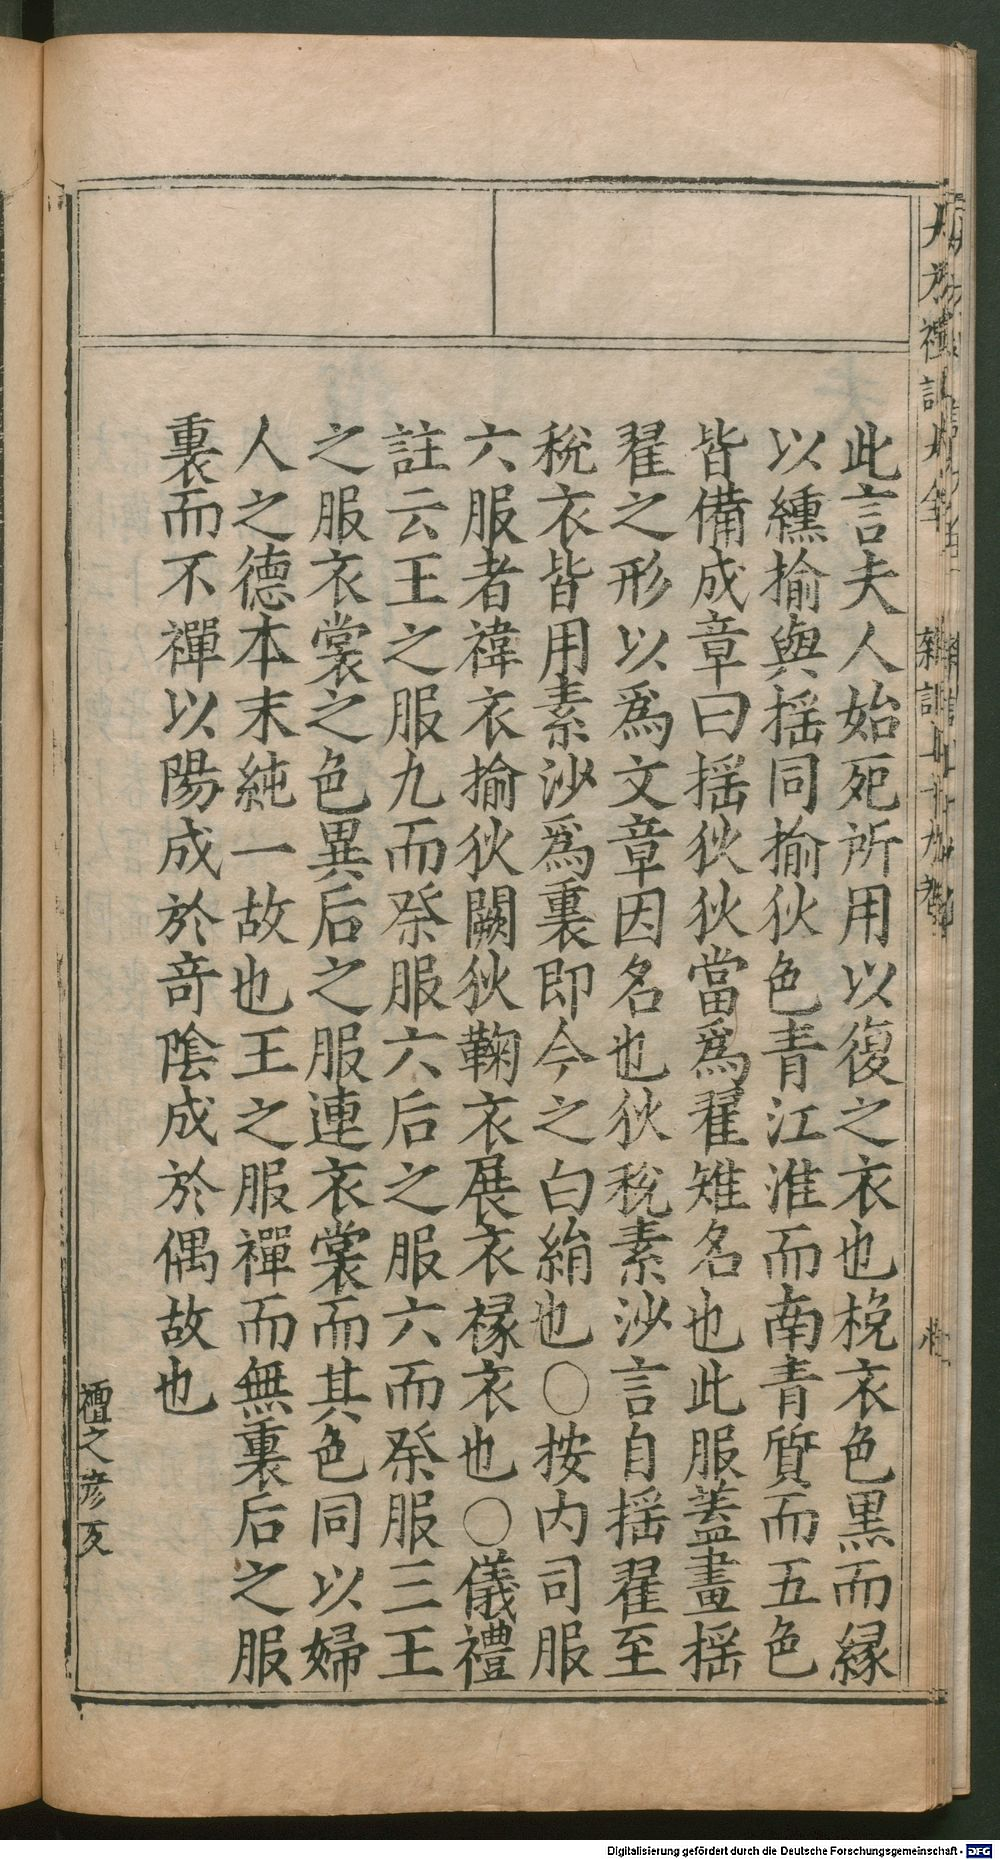 此言夫人始死所用以復之衣也梲衣色黒而縁
以纁揄與揺同揄狄色青江淮而南青質而五色
皆備成章曰揺狄狄當爲翟雉名也此服蓋畫揺
翟之形以爲文章因名也狄稅素沙言自揺翟至
稅衣皆用素沙爲裏即今之白絹也○按内司服
六服者褘衣揄狄闕狄鞠衣展衣褖衣也○儀禮
註云王之服九而祭服六后之服六而祭服三王
之服衣裳之色異后之服連衣裳而其色同以婦
人之德本末純一故也王之服襌而無裏后之服
裏而不襌以陽成於竒陰成於偶故也
Digitalisierung gefördert durch die Deutsche Forschungsgemeinschaft - DFG